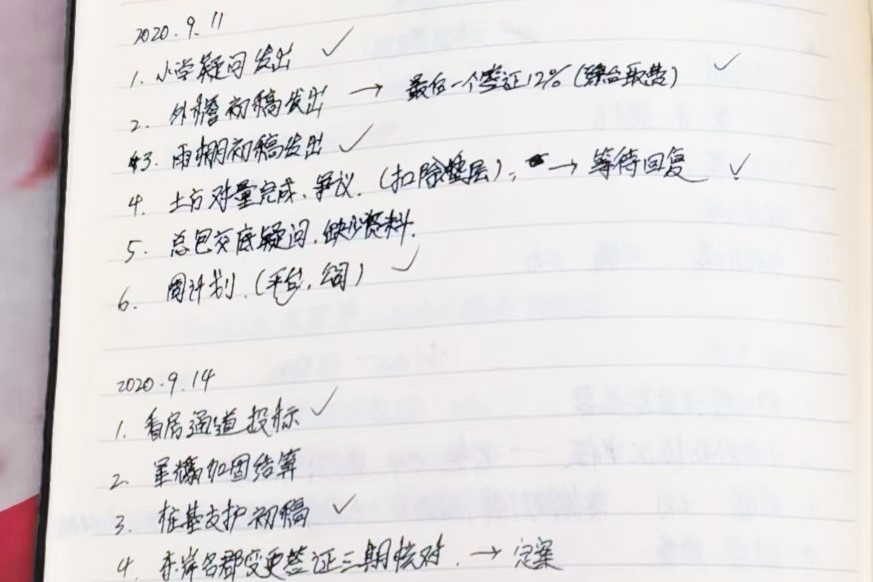 2020.9.11
1. 小学疑问发出 ✓
2. 外墙初稿发出 → 最后一个签证12%(综合取费) ✓
3. 雨棚初稿发出 ✓
4. 土方对量完成、争议.(扣除垫层), → 等待回复 ✓
5. 总包交底疑问.缺少资料.
6. 周计划.(平台,公司) ✓
2020.9.14
1. 看房通道投标 ✓
2. 军横加固结算
3. 桩基支护初稿 ✓
4. 东岸名郡变更签证三期核对. → 定案